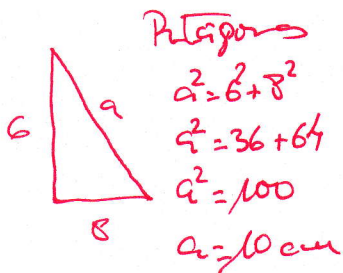 Pitágoras
a²=6²+8²
a²=36+64
a²=100
a=10 cm
6
a
8